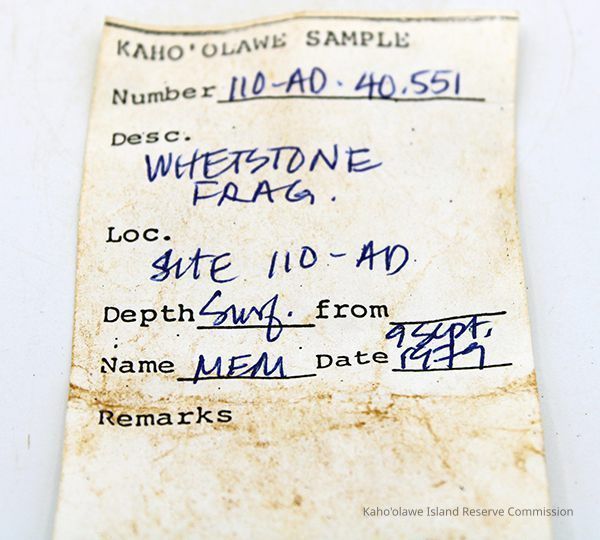 KAHO'OLAWE SAMPLE
Number 110-AD. 40.551
Desc.
WHETSTONE
FRAG.
Loc.
SITE 110-AD
Depth Surf. from
Name MEM Date 9 Sept. 1979
Remarks
Kaho'olawe Island Reserve Commission